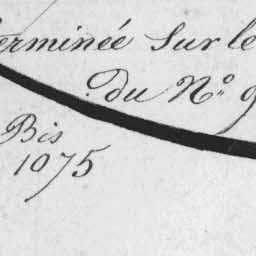 terminée Sur le
du N.º 9
Bis
1075